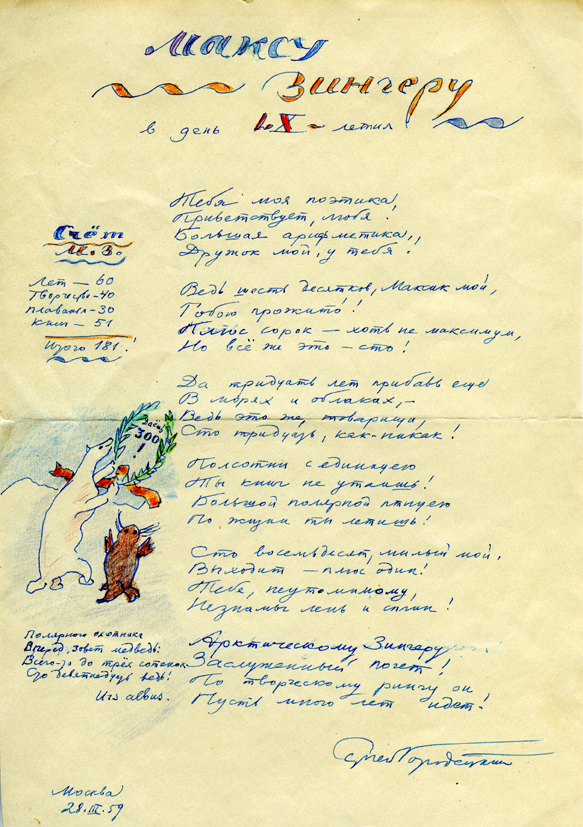 Максу
Зингеру
в день LX-летия
Счёт
М. З.
Лет — 60
Творчество - 40
Плаванья - 30
Книг — 51
Итого 181!
Тебя моя поэтика,
Приветствует, любя.
Большая арифметика,
Дружок мой, у тебя!
Ведь шесть десятков, Максик мой,
Тобою прожито!
Плюс сорок — хоть не максимум,
Но всё же это — сто!
Да тридцать лет прибавь ещё
В морях и облаках, —
Ведь это же, товарищ,
Сто тридцать, как-никак!
Полсотни с единицею
Ты книг не утаишь!
Большой полярной птицею
По жизни ты летишь!
Сто восемьдесят, милый мой,
Выходит — плюс один!
Тебе, неутомимому,
Незнамы лень и сплин!
Арктическому Зингеру
Заслуженный почёт!
По творческому рингу он
Пусть много лет идёт!
Даёшь
300
!
Полярного охотника
Вперёд, зовёт медведь:
Всего-то до трёх сотенок
Сто девятнадцать ведь!
Игз albus.
Сергей Городецкий
Москва
28.III.59